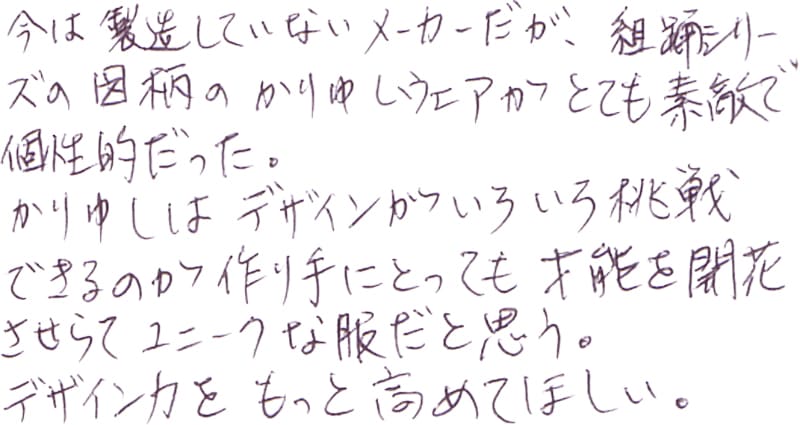 今は製造していないメーカーだが、組踊シリー
ズの図柄のかりゆしウェアがとても素敵で
個性的だった。
かりゆしはデザインがいろいろ挑戦
できるのが作り手にとっても才能を開花
させらてユニークな服だと思う。
デザイン力をもっと高めてほしい。